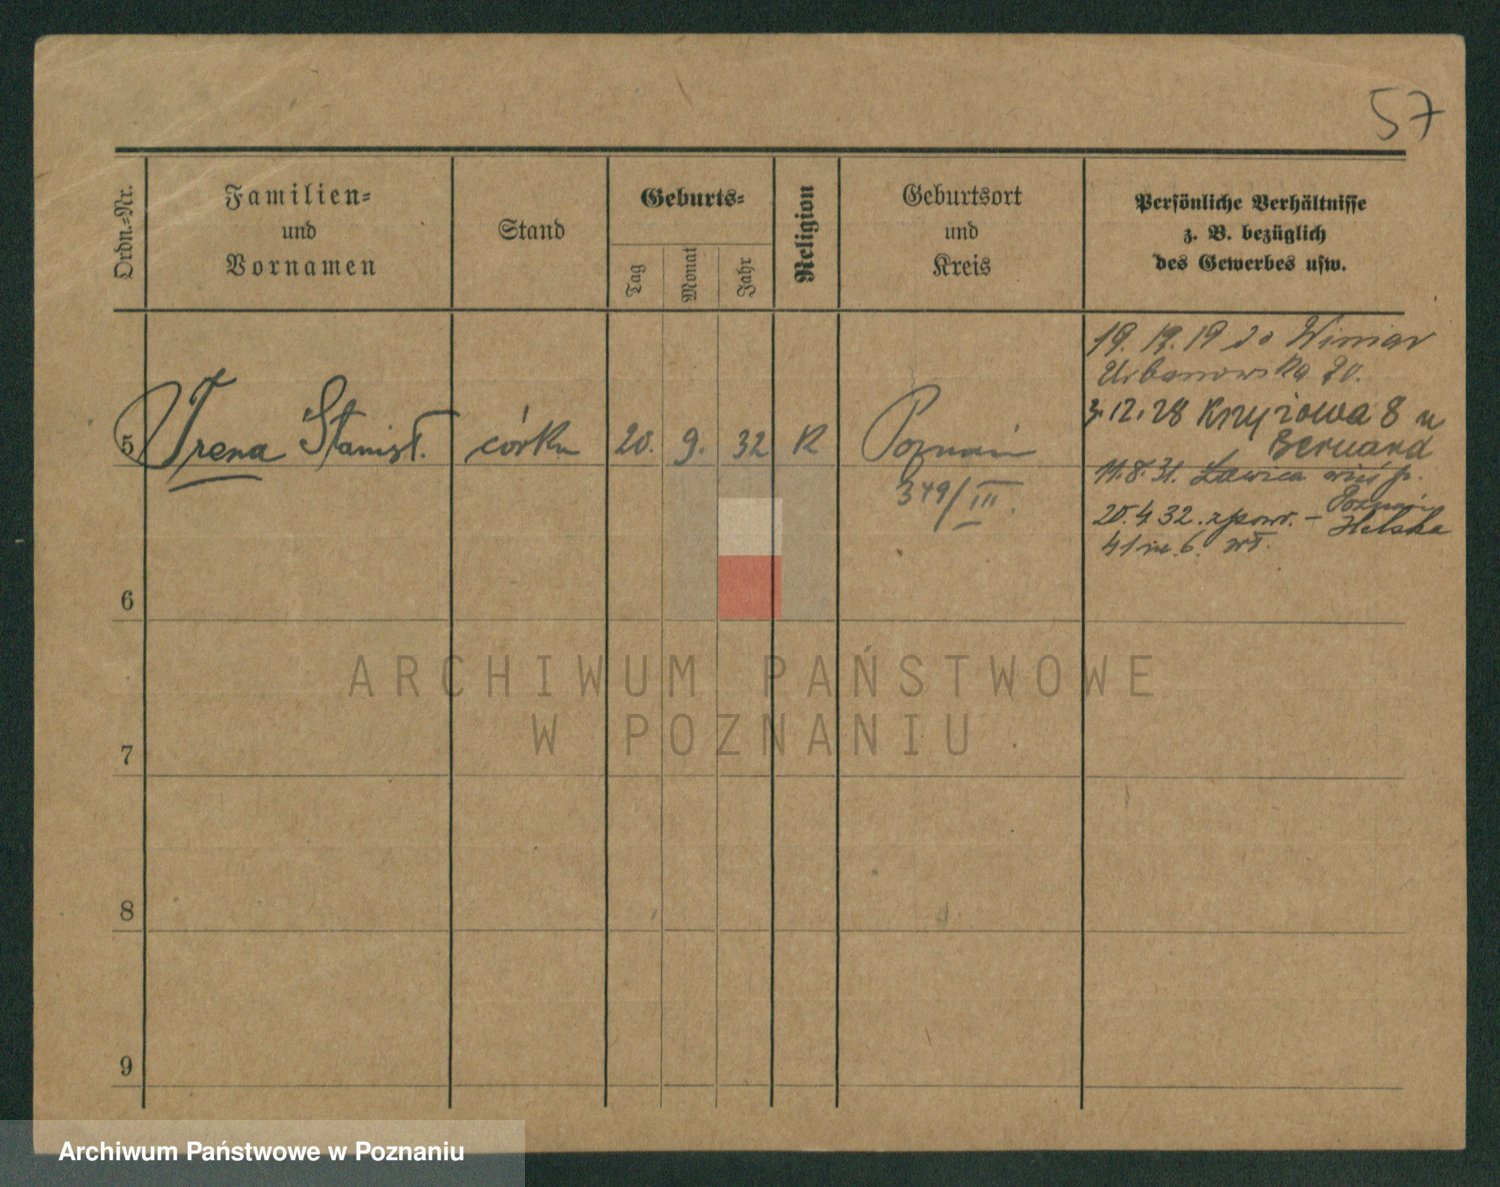 57
Ordn.-Nr.
Familien-
und
Vornamen
Stand
Geburts-
Tag
Monat
Jahr
Religion
Geburtsort
und
Kreis
Persönliche Verhältnisse
z. B. bezüglich
des Gewerbes usw.
19. 12. 19 do Winiar
Urbanowska 20.
3.12.28 Krzyżowa 8 u
Bernard
5 Irena Stanisł. córka 20. 9. 32 K Poznań
349/III.
11.8.31. Ławica wieś p.
Poznań
20.4.32. zpowr. - Helska
41 m. 6. wł.
6
7
8
9
ARCHIWUM PAŃSTWOWE
W POZNANIU
Archiwum Państwowe w Poznaniu